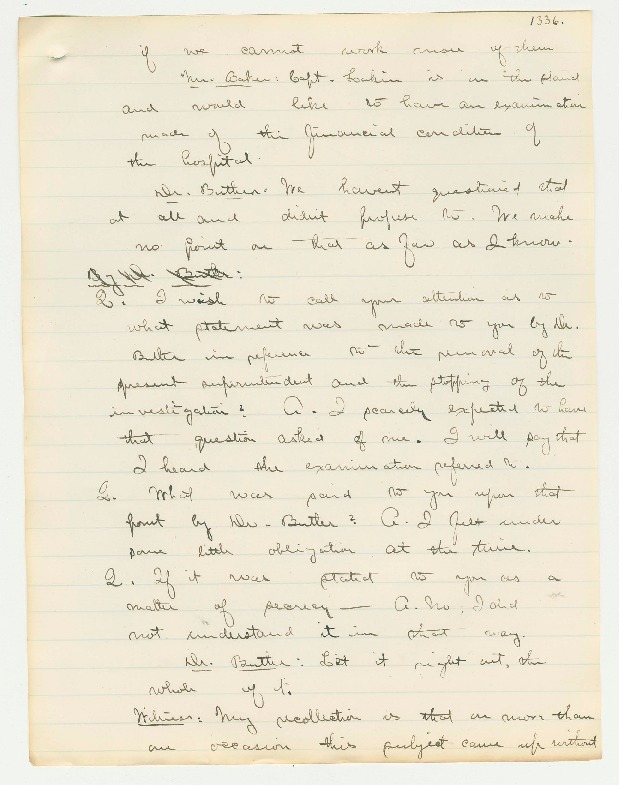 1336.
if we cannot work more of them
Mr. Baker: Capt. Lakin is in the stand
and would like to have an examination
made of the financial condition of
the hospital.
Dr. Butler: We havent questioned that
at all and didnt propose to. We make
no point on that as far as I know.
By Dr. Butler:
Q. I wish to call your attention as to
what statement was made to you by Dr.
Butler in reference to the removal of the
present superintendent and the stopping of the
investigation? A. I scarcely expected to have
that question asked of me. I will say that
I heard the examination referred to.
Q. What was said to you upon that
point by Dr. Butler? A. I felt under
some little obligation at the time.
Q. If it was stated to you as a
matter of secrecy — A. No, I did
not understand it in that way.
Dr. Butler: Let it right out, the
whole of it.
Witness: My recollection is that on more than
one occasion this subject came up without